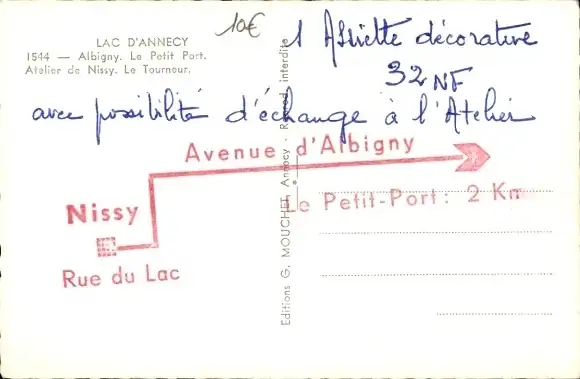 LAC D'ANNECY
1544 — Albigny. Le Petit Port.
Atelier de Nissy. Le Tourneur.
10€
1 Assiette décorative
32 NF
avec possibilité d'échange à l'Atelier
Avenue d'Albigny
Nissy
Le Petit-Port: 2 Km
Rue du Lac
Editions G. MOUCHET, Annecy - Reprod. interdite